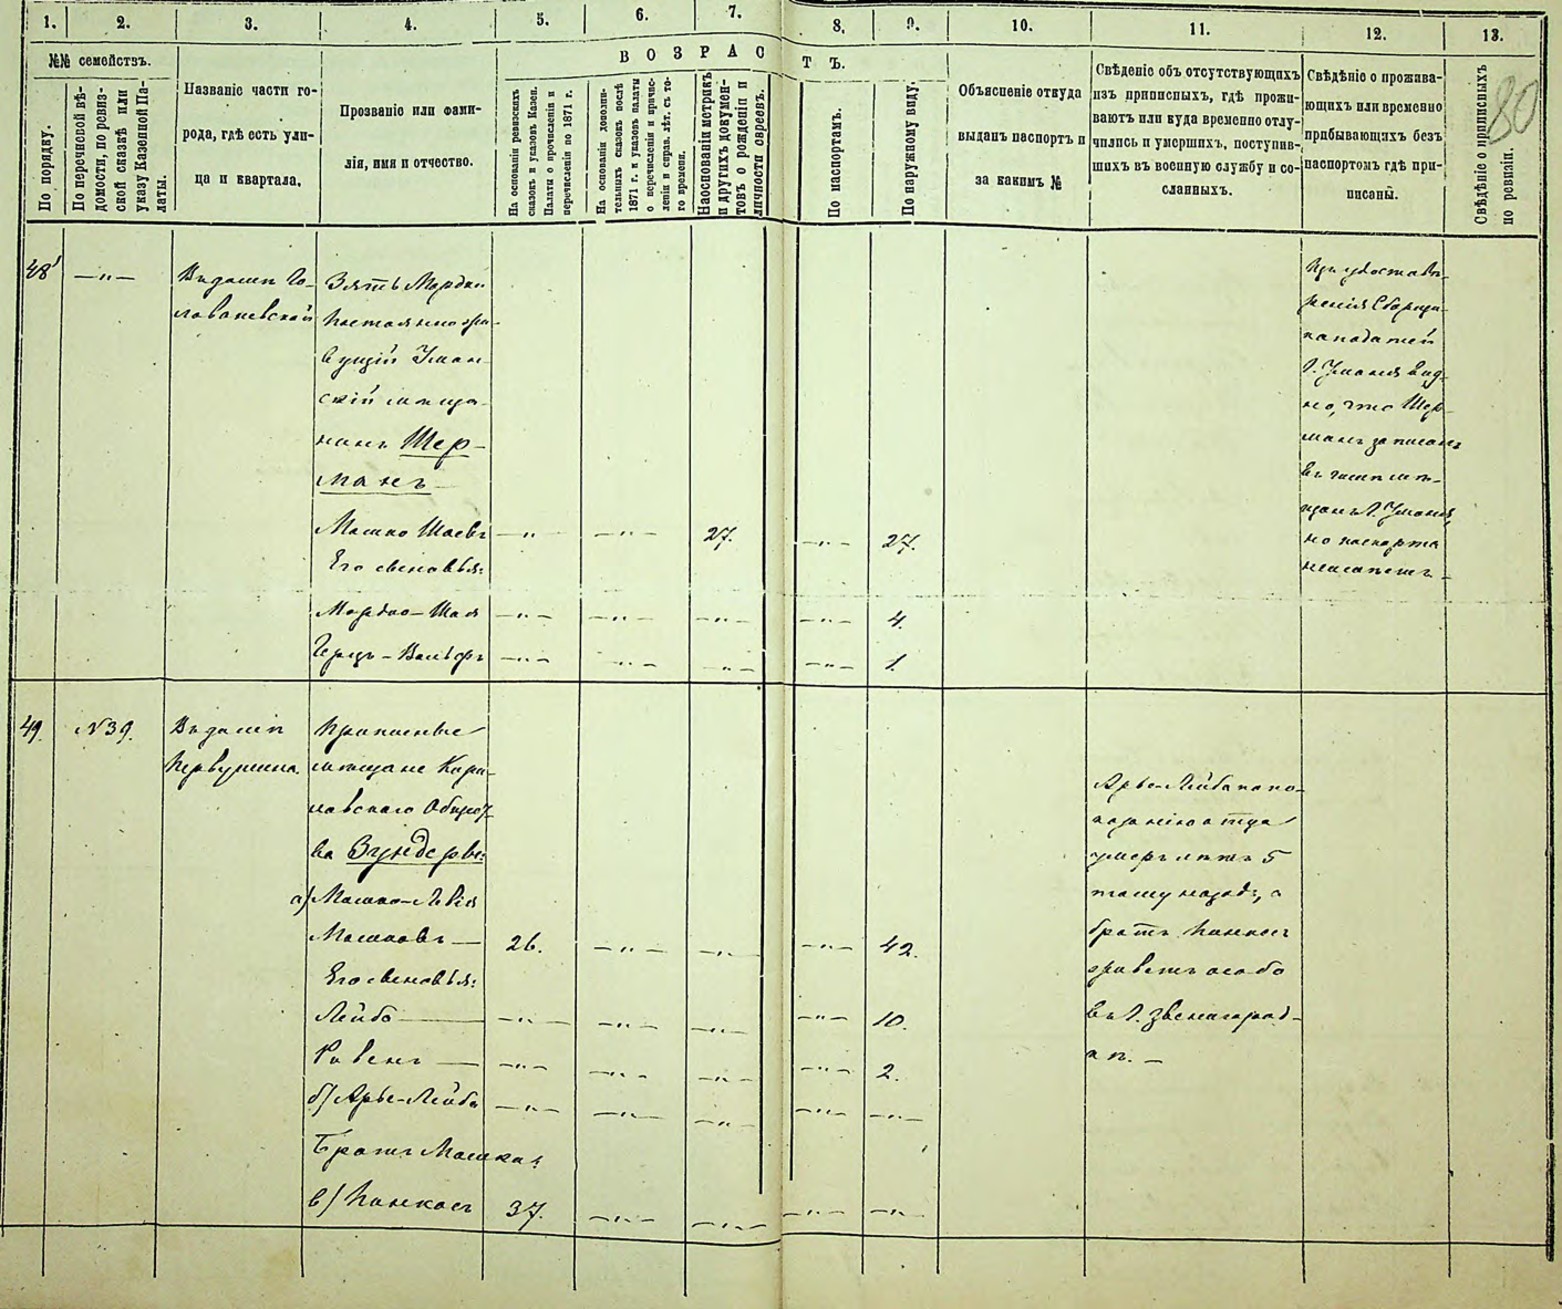 1. 2. 3. 4. 5. 6. 7. 8. 9. 10. 11. 12. 13.
80
№№ семействъ.
По порядку.
По перечневой вѣ-
домости, по ревиз-
ской сказкѣ или
указу Казенной Па-
латы.
Названіе части го-
рода, гдѣ есть ули-
ца и квартала.
Прозваніе или фами-
лія, имя и отчество.
ВОЗРАСТЪ.
На основаніи ревизскихъ
сказокъ и указовъ Казен.
Палаты о причисленіи и
перечисленіи по 1871 г.
На основаніи дополни-
тельныхъ сказокъ послѣ
1871 г. и указовъ палаты
о перечисленіи и причис-
леніи и справ. лѣт. съ то-
го времени.
На основаніи метрикъ
и другихъ докумен-
товъ о рожденіи и
личности евреевъ.
По паспортамъ.
По наружному виду.
Объясненіе откуда
выданъ паспортъ и
за какимъ №
Свѣденіе объ отсутствующихъ
изъ приписныхъ, гдѣ прожи-
ваютъ или куда временно отлу-
чились и умершихъ, поступив-
шихъ въ военную службу и со-
сланныхъ.
Свѣдѣніе о прожива-
ющихъ или временно
прибывающихъ безъ
паспортомъ гдѣ при-
писаны.
Свѣдѣніе о приписныхъ
по ревизіи.
48 —"—
Въ домѣ Го-
лованевской
Зять Мордки
постоянно жи-
вущій Уман-
скій мѣща-
нинъ Шер-
манъ
Мошко Шаевъ —"— —"— 27. —"— 27.
Его сыновья:
Мордко-Шая —"— —"— —"— —"— 4.
Герцъ-Вольфъ —"— —"— —"— —"— 1.
Изъ удостовѣ-
ренія Сборщи-
ка податей
г. Уманя вид-
но, что Шер-
манъ записанъ
въ числѣ мѣ-
щанъ г. Уманя,
но паспорта
неимѣетъ
49. №39.
Въ домѣ
Первушина.
Приписные
мѣщане Кори-
новскаго Общес-
ва Вундербе:
а) Мошко-Левія
Мошковъ — 26. —"— —"— —"— 42.
Его сыновья:
Лейба —"— —"— —"— —"— 10.
Рувенъ —"— —"— —"— —"— 2.
б) Арье-Лейба —"— —"— —"— —"— —"—
Братъ Мошка:
в) Пинкасъ 37. —"— —"— —"— —"—
Арье-Лейба по по-
казанію отца
умеръ лѣтъ 5
тому назадъ, а
братъ Пинкасъ
живетъ особо
въ г. Звенигород-
кѣ. —